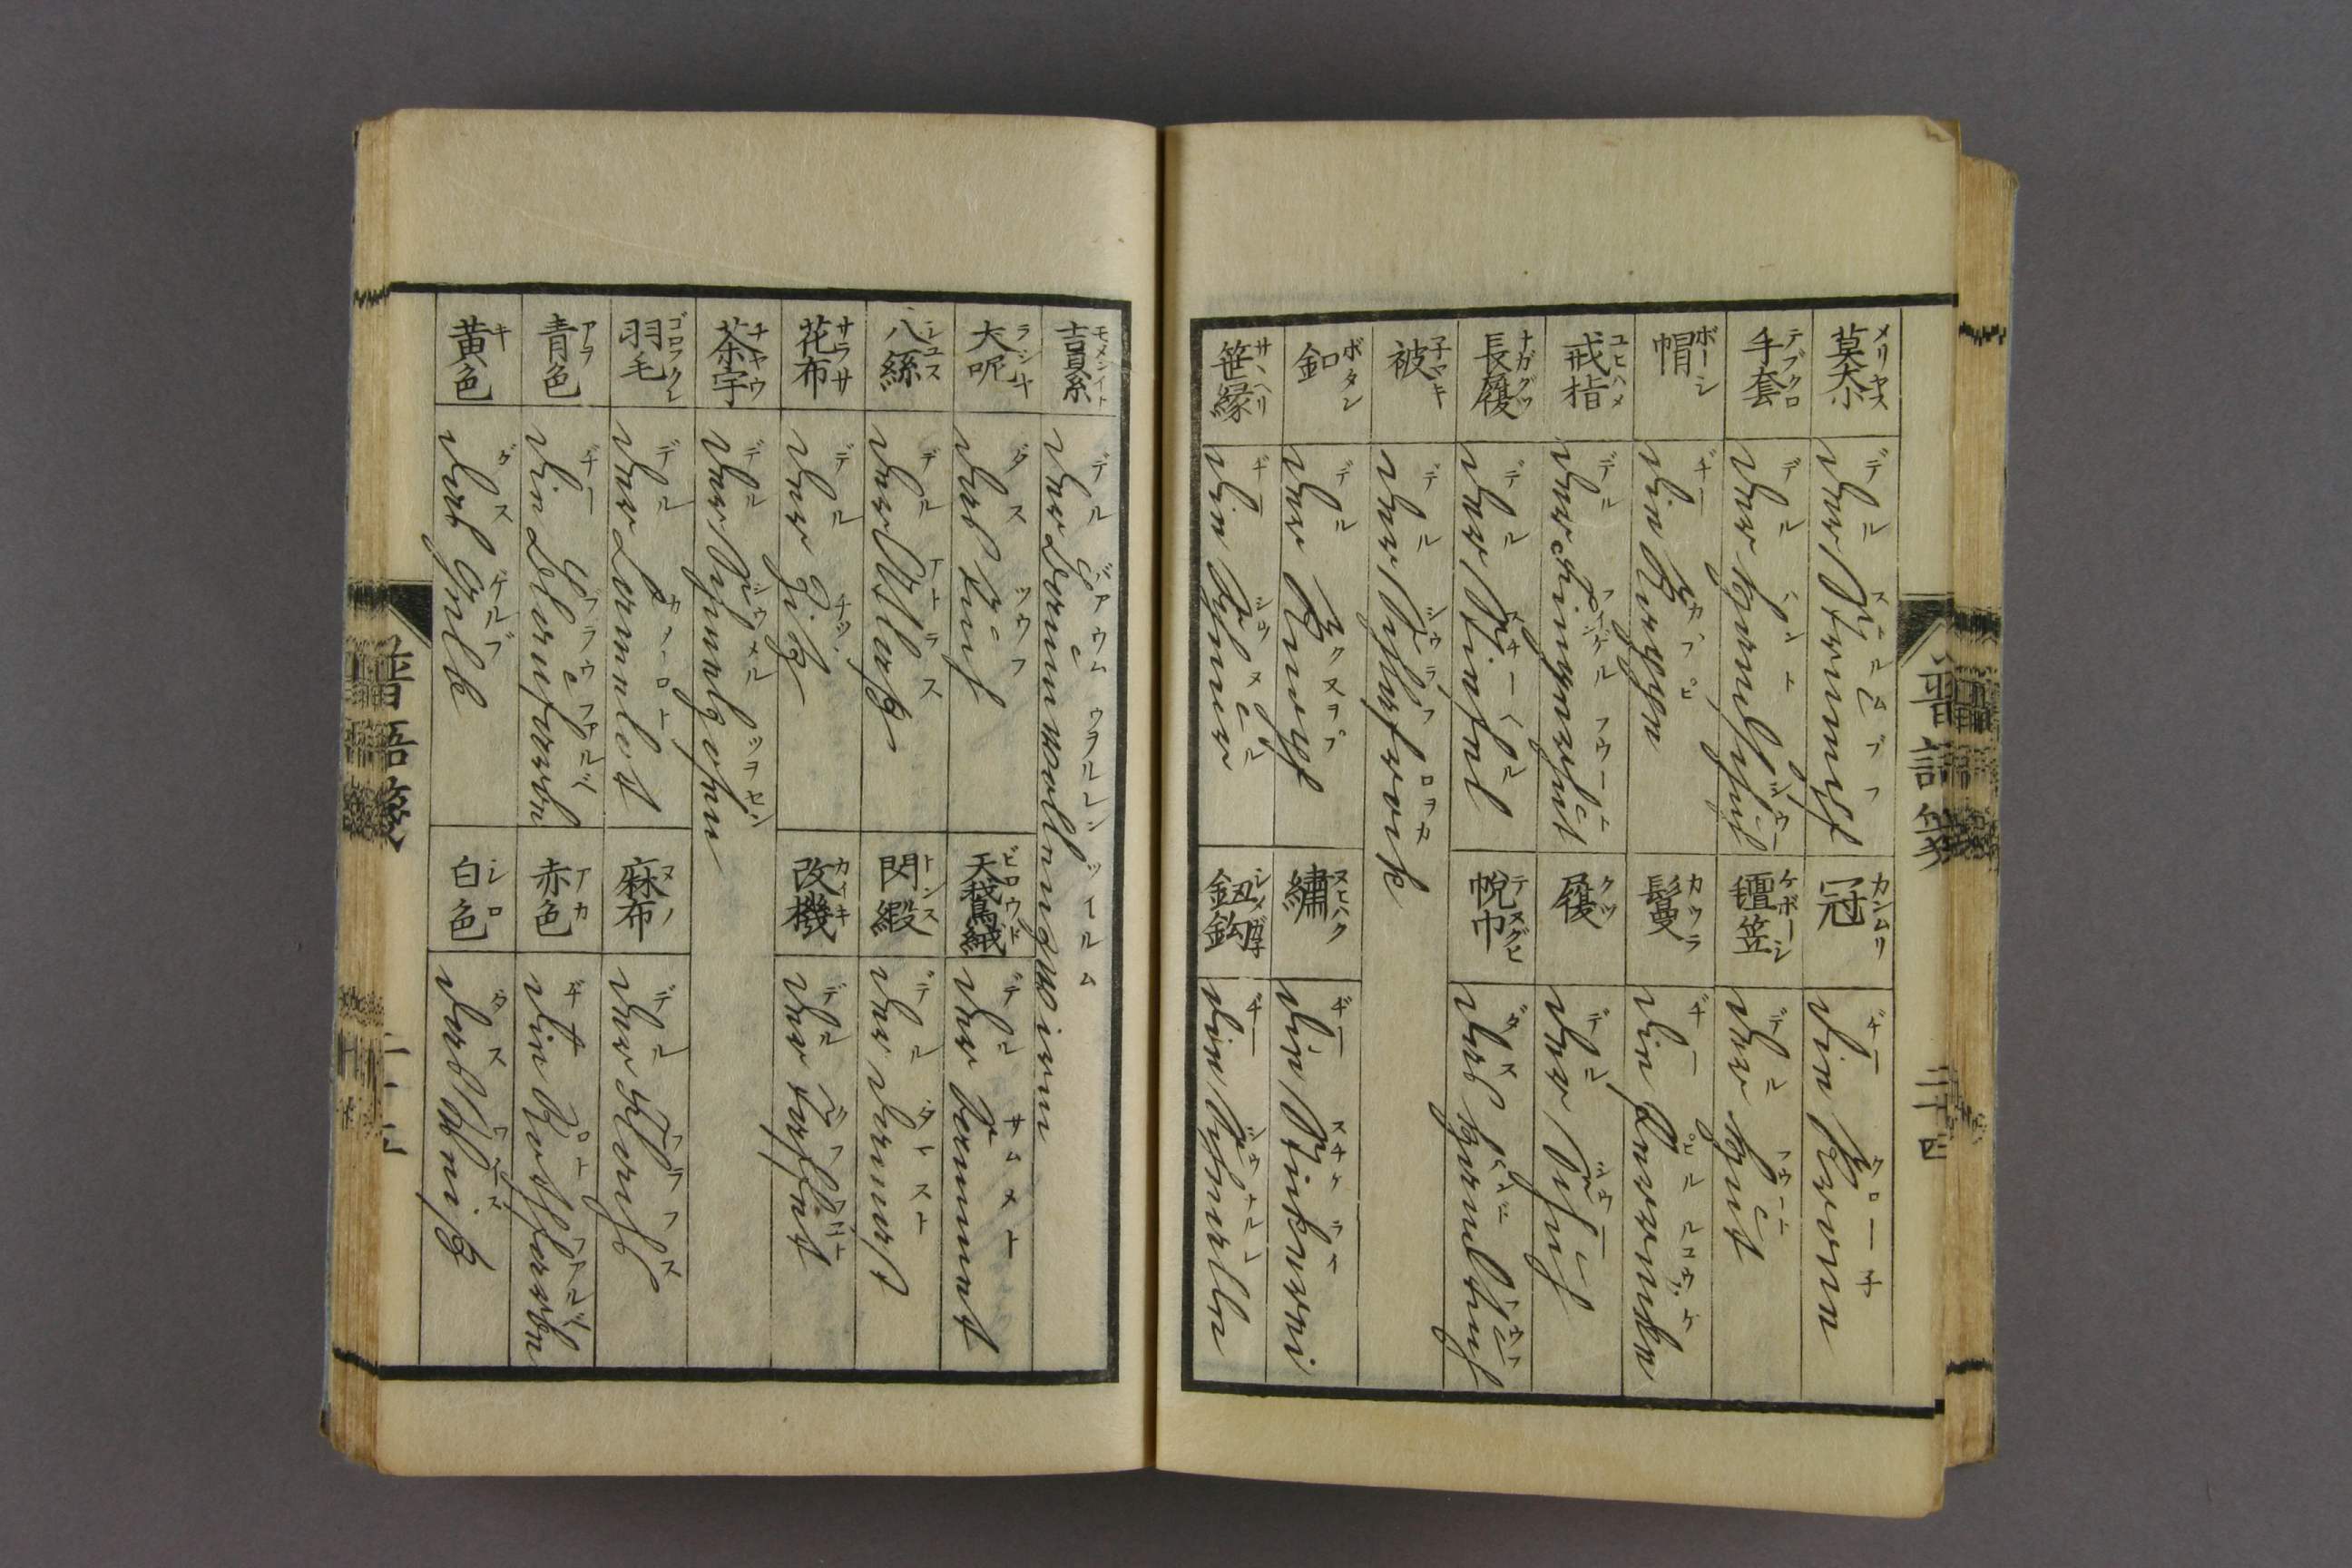 莫大小 メリヤス
der Strumpf デル ストルムプフ
冠 カンムリ
die Krone ヂー クローネ
手套 テブクロ
der Handschuh デル ハントシウー
氊笠 ケボーシ
der Hut デル フウート
帽 ボーシ
die Kappe ヂー カツペ
鬘 カツラ
die Perrucke ヂー ピルルユウケ
戒指 ユヒハメ
der Fingerhut デル フインゲルフウート
履 クツ
der Schuh デル シウー
長履 ナガグツ
der Stiefel デル スチーヘル
帨巾 テヌグヒ
das Handtuch ダス
被 子マキ
der Schlafrock デル シウラーフロヲカ
釦 ボタン
der Knopf デル クヌヲプ
繡 ヌヒハク
die Stickerei ヂー スチケライ
笹縁 サヽヘリ
die Schnur ヂー
鈕鈎
die Schnalle ヂー シウナルレ
普語箋
二十四
吉貝糸 モメンイト
der Baumwollenzwirn デル バアウムウヲルレンツイルム
大呢 ラシヤ
das Tuch ダス ツウフ
天鵞絨 ビロウド
der Sammet デル サムメト
八絲 シユス
der Atlaß デル アトラス
閃緞 ドンス
der Damast デル ダマスト
花布 サラサ
der Zitz デル チツ
改機 カイキ
der Taffet デル
茶宇 チヤウ
デル シウメルツヲセン
羽毛 ゴロフクレ
der Camelot デル カメロート
麻布 ヌノ
der Flachs デル フラフス
青色 アヲ
die Blaufarbe ヂー ブラウフアルベ
赤色 アカ
die Rothfarbe ヂー ロトフアルベ
黄色 キ
das Gelb ダス ゲルブ
白色 シロ
das Weiß ダス
普語箋
二十五